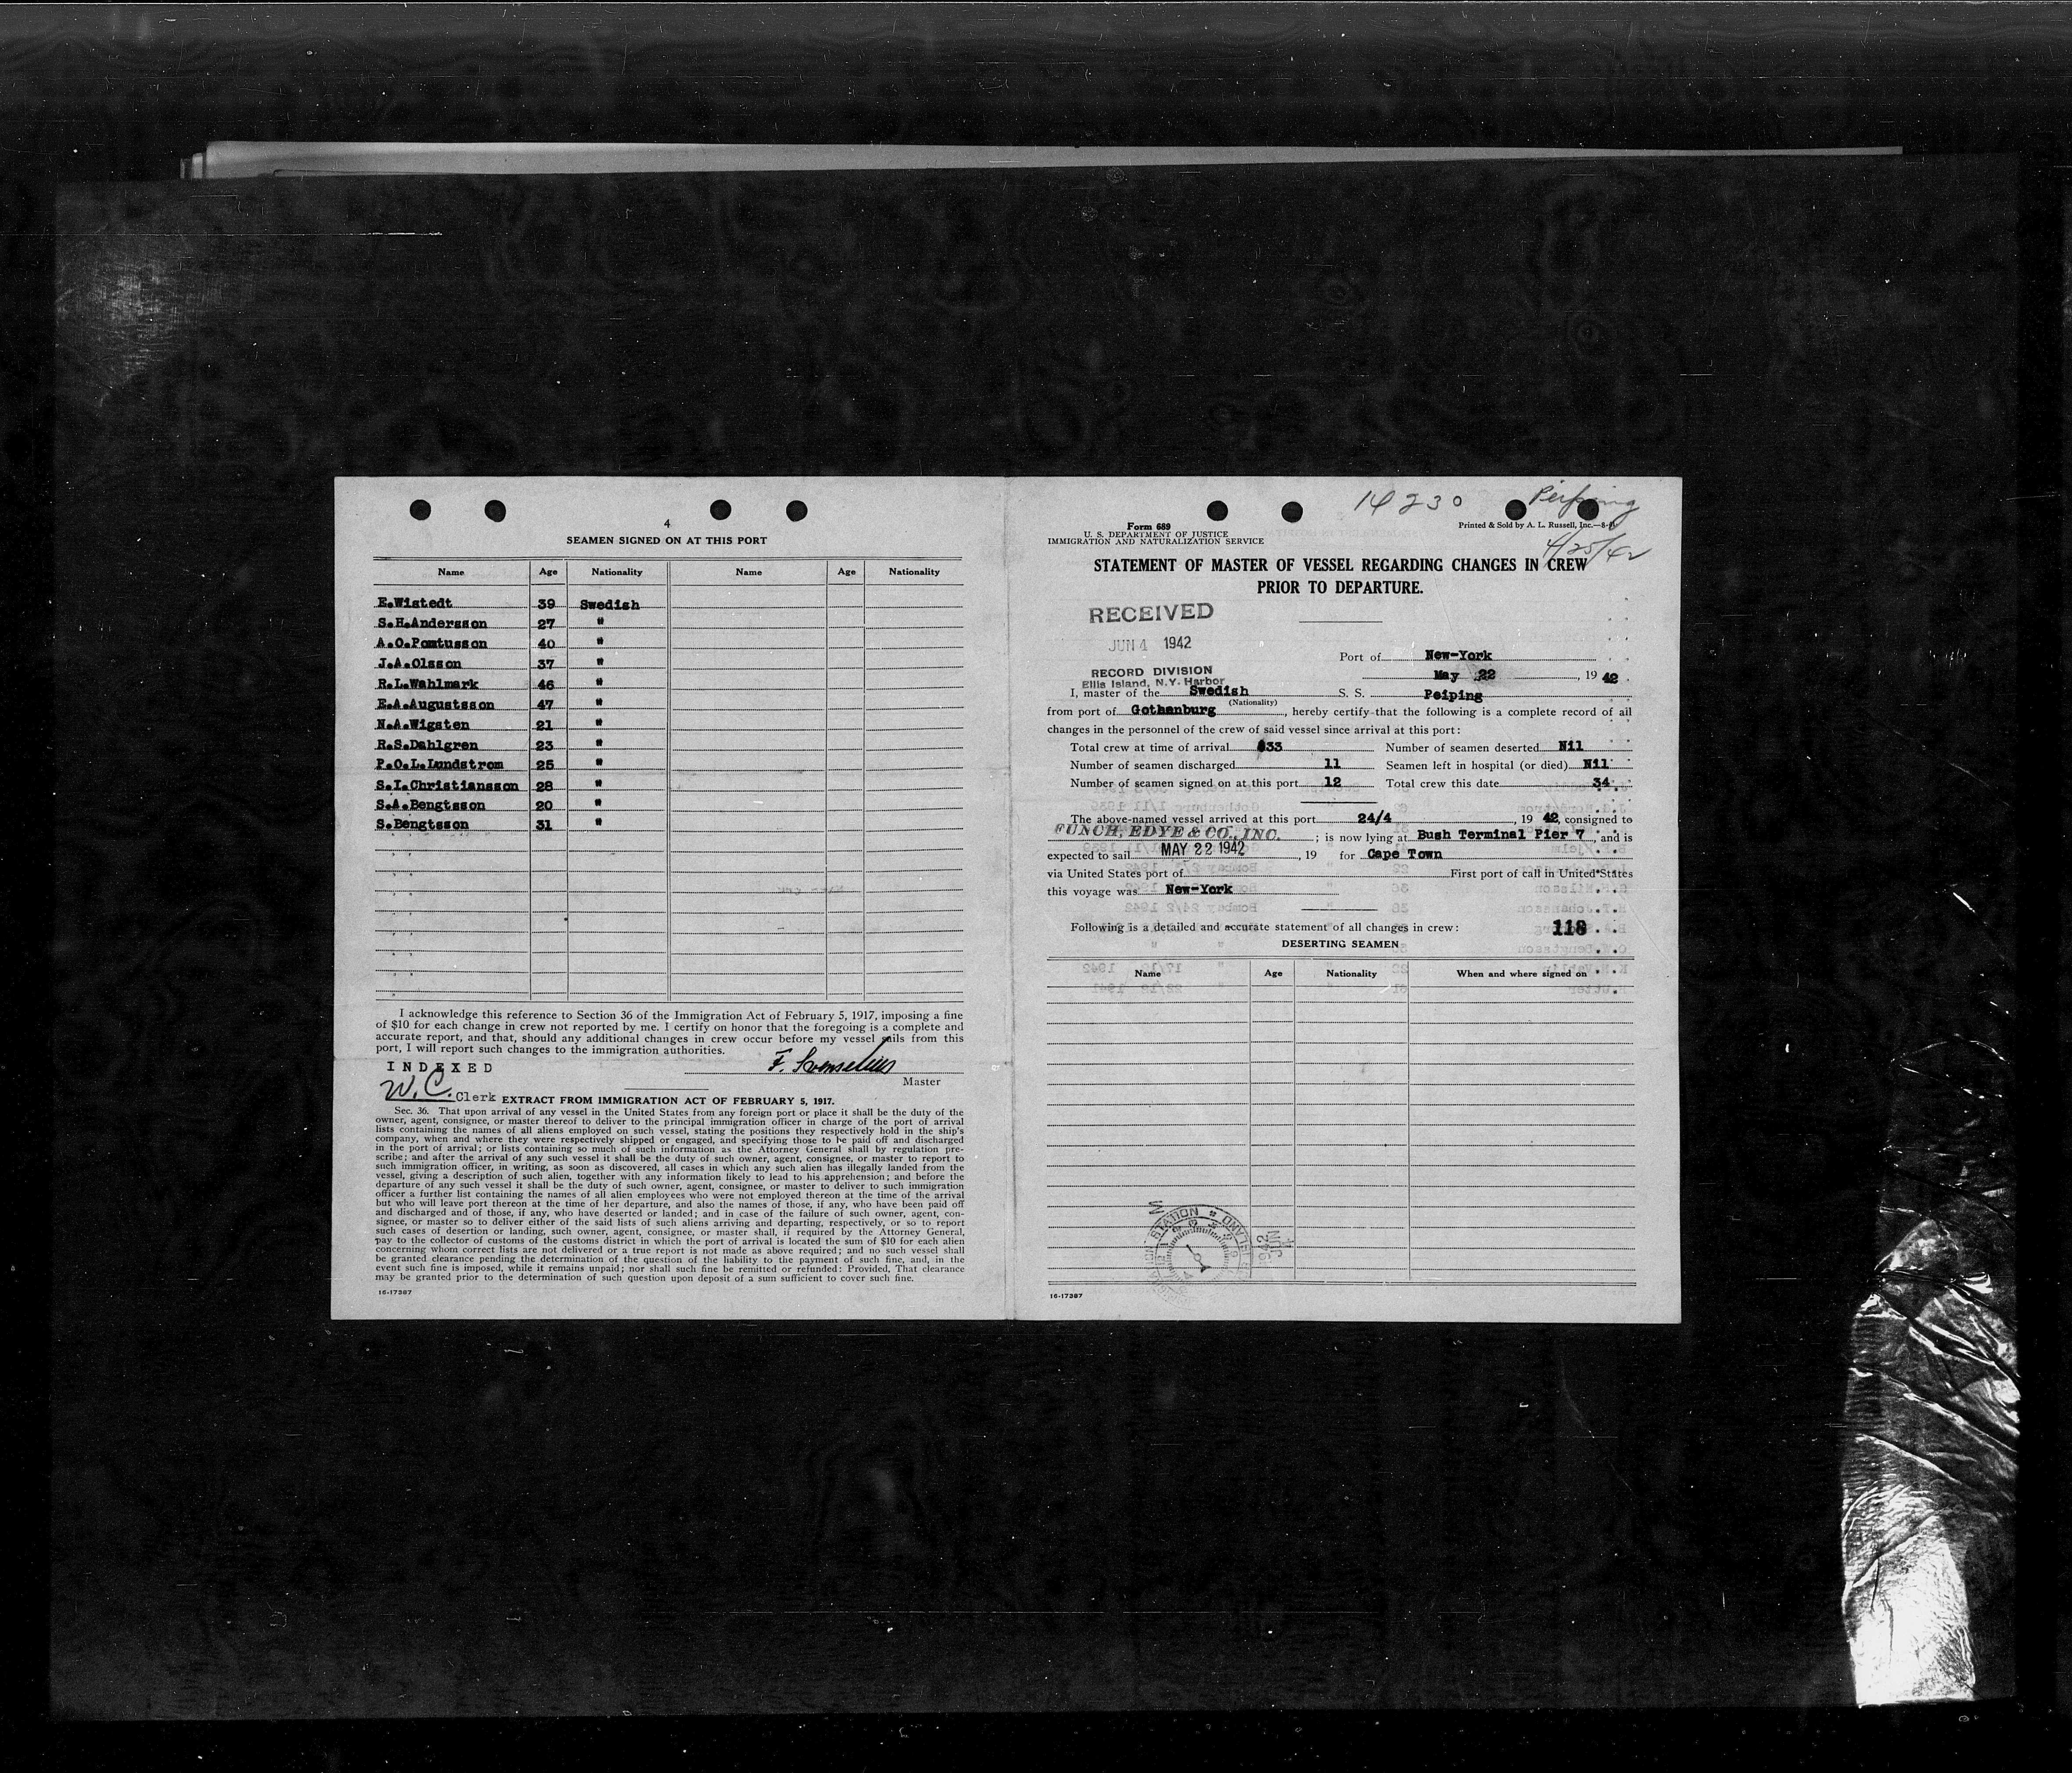 4
SEAMEN SIGNED ON AT THIS PORT
Name Age Nationality Name Age Nationality
E.Wistedt 39 Swedish
S.H.Andersson 27 "
A.O.Pomtusson 40 "
J.A.Olsson 37 "
R.L.Wahlmark 46 "
E.A.Augustsson 47 "
N.A.Wigsten 21 "
R.S.Dahlgren 23 "
P.O.L.Lundstrom 25 "
S.I.Christiansson 28 "
S.A.Bengtsson 20 "
S.Bengtsson 31 "
I acknowledge this reference to Section 36 of the Immigration Act of February 5, 1917, imposing a fine
of $10 for each change in crew not reported by me. I certify on honor that the foregoing is a complete and
accurate report, and that, should any additional changes in crew occur before my vessel sails from this
port, I will report such changes to the immigration authorities.
INDEXED
F.
Master
W.C. Clerk
EXTRACT FROM IMMIGRATION ACT OF FEBRUARY 5, 1917.
Sec. 36. That upon arrival of any vessel in the United States from any foreign port or place it shall be the duty of the
owner, agent, consignee, or master thereof to deliver to the principal immigration officer in charge of the port of arrival
lists containing the names of all aliens employed on such vessel, stating the positions they respectively hold in the ship's
company, when and where they were respectively shipped or engaged, and specifying those to be paid off and discharged
in the port of arrival; or lists containing so much of such information as the Attorney General shall by regulation pre-
scribe; and after the arrival of any such vessel it shall be the duty of such owner, agent, consignee, or master to report to
such immigration officer, in writing, as soon as discovered, all cases in which any such alien has illegally landed from the
vessel, giving a description of such alien, together with any information likely to lead to his apprehension; and before the
departure of any such vessel it shall be the duty of such owner, agent, consignee, or master to deliver to such immigration
officer a further list containing the names of all alien employees who were not employed thereon at the time of the arrival
but who will leave port thereon at the time of her departure, and also the names of those, if any, who have been paid off
and discharged and of those, if any, who have deserted or landed; and in case of the failure of such owner, agent, con-
signee, or master so to deliver either of the said lists of such aliens arriving and departing, respectively, or so to report
such cases of desertion or landing, such owner, agent, consignee, or master shall, if required by the Attorney General,
pay to the collector of customs of the customs district in which the port of arrival is located the sum of $10 for each alien
concerning whom correct lists are not delivered or a true report is not made as above required; and no such vessel shall
be granted clearance pending the determination of the question of the liability to the payment of such fine, and, in the
event such fine is imposed, while it remains unpaid; nor shall such fine be remitted or refunded: Provided, That clearance
may be granted prior to the determination of such question upon deposit of a sum sufficient to cover such fine.
16-17387
14230 Peiping
4/25/42
Form 689
U. S. DEPARTMENT OF JUSTICE
IMMIGRATION AND NATURALIZATION SERVICE
Printed & Sold by A. L. Russell, Inc.
STATEMENT OF MASTER OF VESSEL REGARDING CHANGES IN CREW
PRIOR TO DEPARTURE.
RECEIVED
JUN 4 1942
RECORD DIVISION
Ellis Island, N.Y. Harbor
Port of New-York
May 22, 19 42
I, master of the Swedish S. S. Peiping
(Nationality)
from port of Gothenburg, hereby certify that the following is a complete record of all
changes in the personnel of the crew of said vessel since arrival at this port:
Total crew at time of arrival 33 Number of seamen deserted Nil
Number of seamen discharged 11 Seamen left in hospital (or died) Nil
Number of seamen signed on at this port 12 Total crew this date 34
The above-named vessel arrived at this port 24/4, 19 42, consigned to
FUNCH, EDYE & CO., INC.; is now lying at Bush Terminal Pier 7, and is
expected to sail MAY 22 1942, 19 for Cape Town
via United States port of First port of call in United States
this voyage was New-York
Following is a detailed and accurate statement of all changes in crew: 118
DESERTING SEAMEN
Name Age Nationality When and where signed on
JUN 4 1942
16-17387